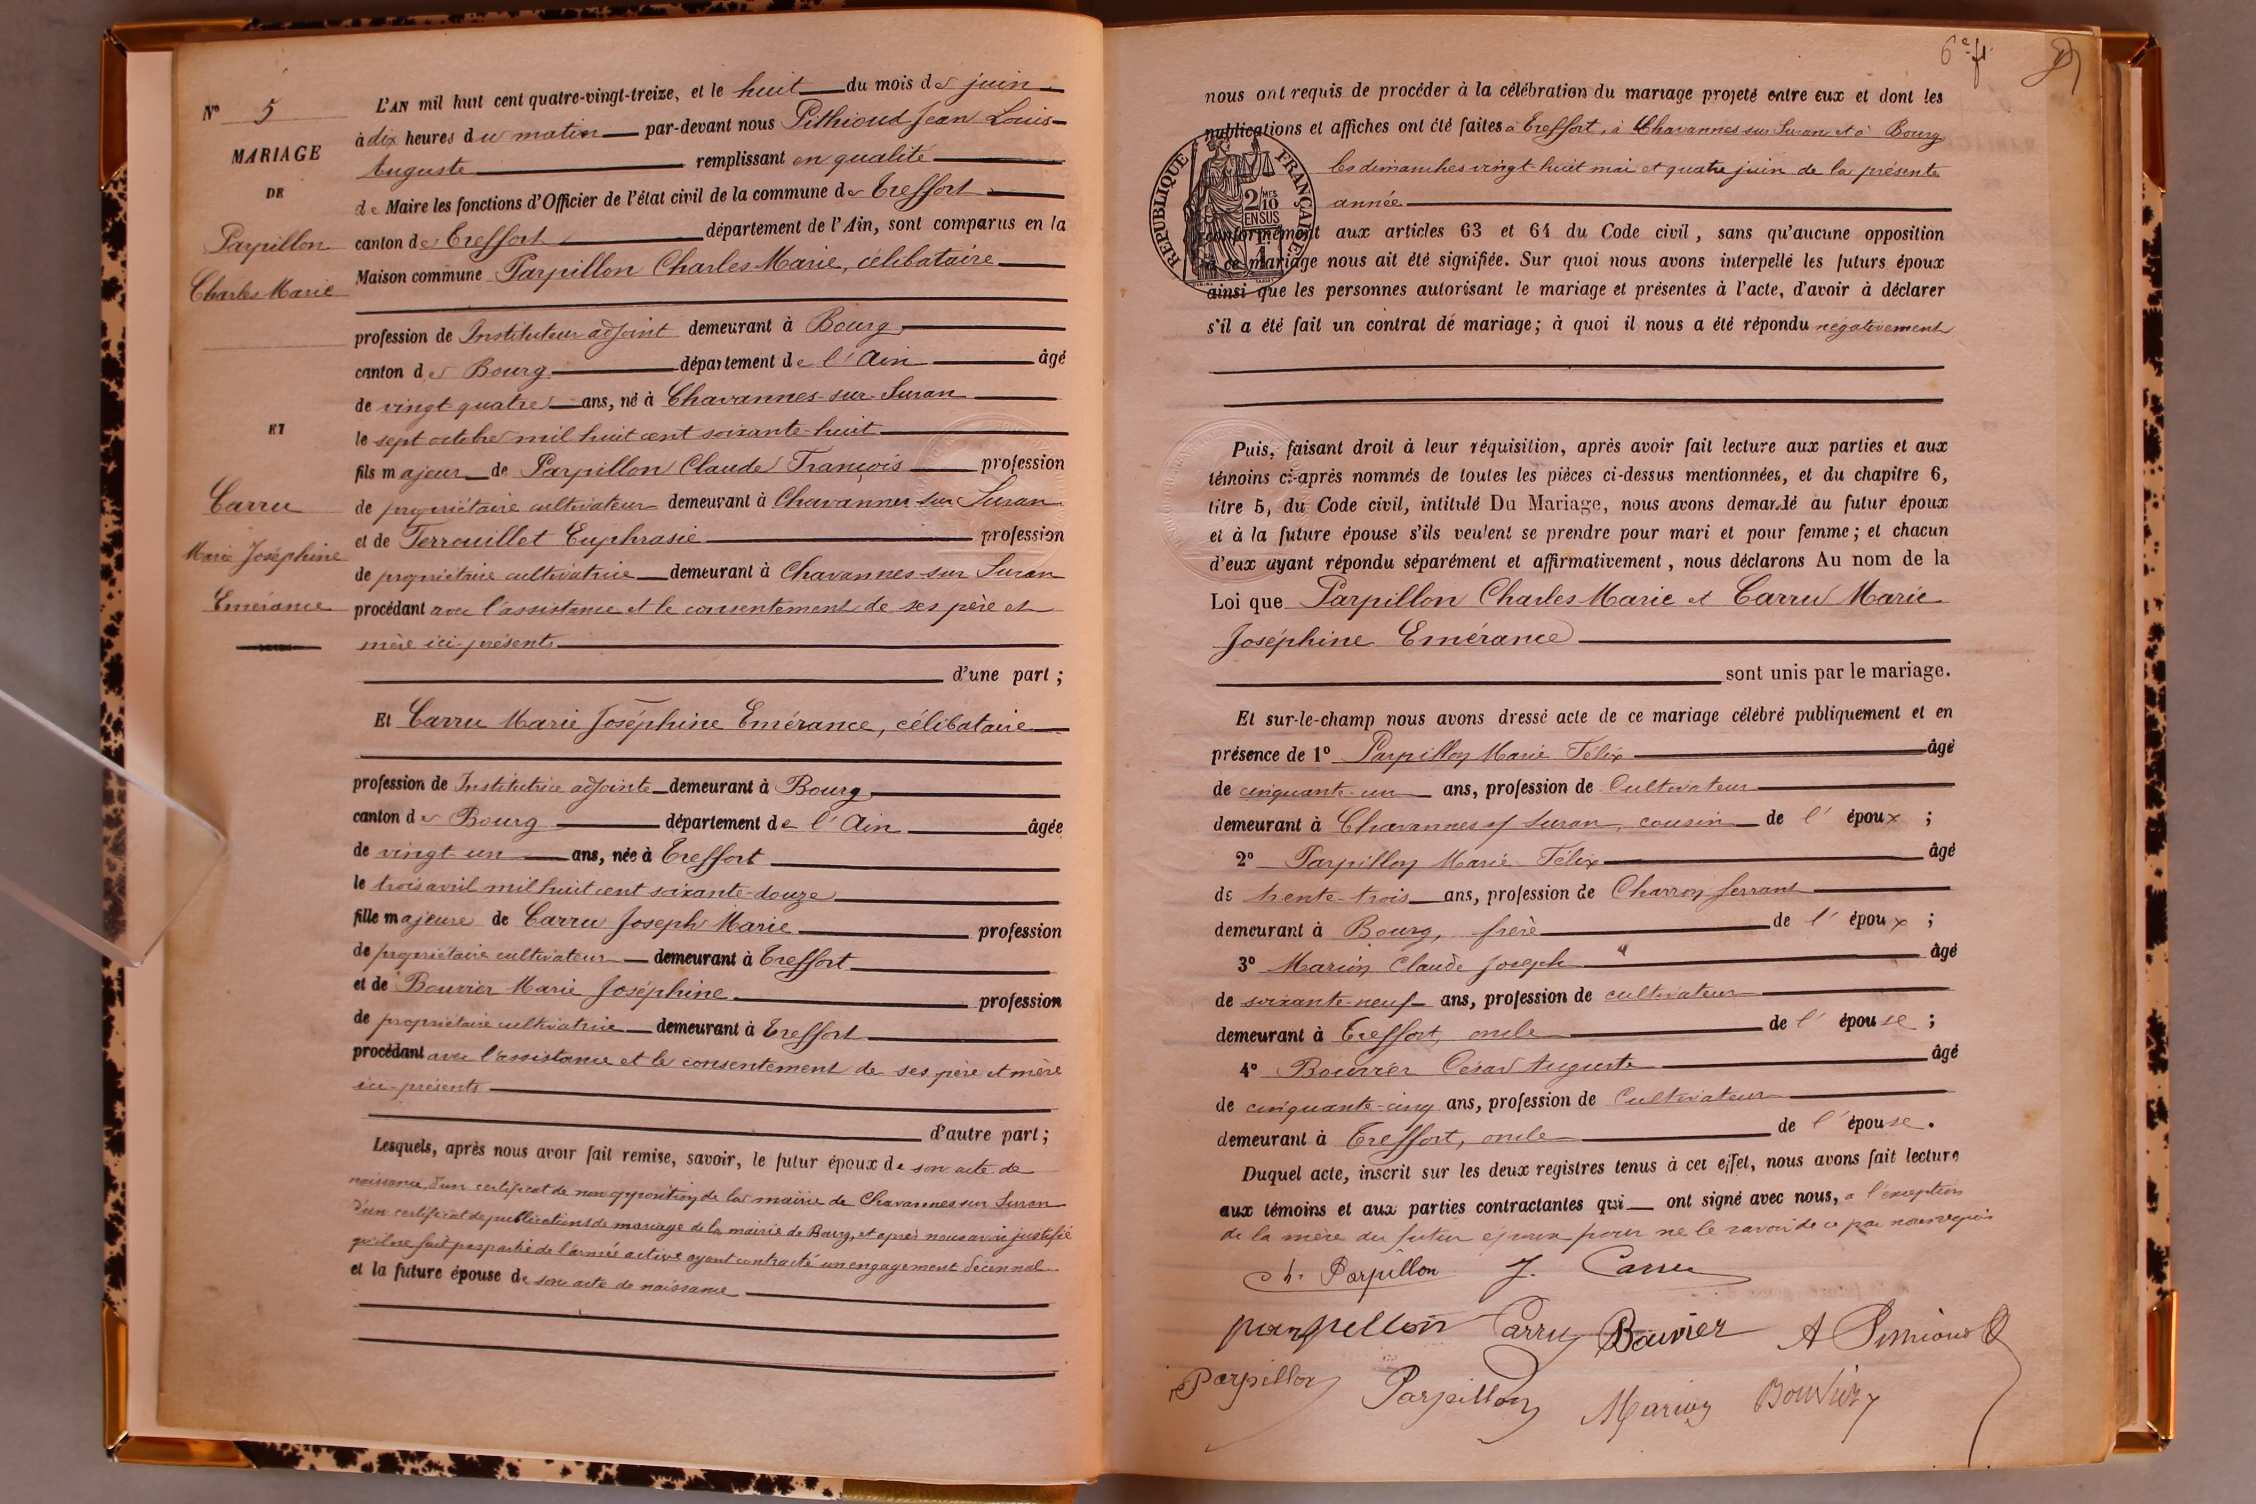 N° 5
MARIAGE
DE
Parpillon
Charles Marie
ET
Carru
Marie Joséphine
Emérance
L'AN mil huit cent quatre-vingt-treize, et le huit du mois de juin
à dix heures du matin par-devant nous Pithioud Jean Louis
Auguste remplissant en qualité
de Maire les fonctions d'Officier de l'état civil de la commune de Treffort
canton de Treffort département de l'Ain, sont comparus en la
Maison commune Parpillon Charles Marie, célibataire
profession de Instituteur adjoint demeurant à Bourg
canton de Bourg département de l'Ain âgé
de vingt quatre ans, né à Chavannes-sur-Suran
le sept octobre mil huit cent soixante-huit
fils majeur de Parpillon Claude François profession
de propriétaire cultivateur demeurant à Chavannes-sur Suran
et de Ferrouillet Euphrasie profession
de propriétaire cultivatrice demeurant à Chavannes-sur Suran
procédant avec l'assistance et le consentement de ses père et
mère ici-présents
d'une part ;
Et Carru Marie Joséphine Emérance, célibataire
profession de Institutrice adjointe demeurant à Bourg
canton de Bourg département de l'Ain âgée
de vingt-un ans, née à Treffort
le trois avril mil huit cent soixante-douze
fille majeure de Carru Joseph Marie profession
de propriétaire cultivateur demeurant à Treffort
et de Bouvier Marie Joséphine profession
de propriétaire cultivatrice demeurant à Treffort
procédant avec l'assistance et le consentement de ses père et mère
ici-présents
d'autre part ;
Lesquels, après nous avoir fait remise, savoir, le futur époux de son acte de
naissance, d'un certificat de non opposition de la mairie de Chavannes sur Suran
d'un certificat de publications de mariage de la mairie de Bourg, et après nous avoir justifié
qu'il ne fait pas partie de l'armée active ayant contracté un engagement décennal
et la future épouse de son acte de naissance
6e ft
nous ont requis de procéder à la célébration du mariage projeté entre eux et dont les
publications et affiches ont été faites à Treffort, à Chavannes sur Suran et à Bourg
les dimanches vingt-huit mai et quatre juin de la présente
année
RÉPUBLIQUE FRANÇAISE
2/10 EN SUS
conformément aux articles 63 et 64 du Code civil, sans qu'aucune opposition
à ce mariage nous ait été signifiée. Sur quoi nous avons interpellé les futurs époux
ainsi que les personnes autorisant le mariage et présentes à l'acte, d'avoir à déclarer
s'il a été fait un contrat de mariage; à quoi il nous a été répondu négativement
Puis, faisant droit à leur réquisition, après avoir fait lecture aux parties et aux
témoins ci-après nommés de toutes les pièces ci-dessus mentionnées, et du chapitre 6,
titre 5, du Code civil, intitulé Du Mariage, nous avons demandé au futur époux
et à la future épouse s'ils veulent se prendre pour mari et pour femme; et chacun
d'eux ayant répondu séparément et affirmativement, nous déclarons Au nom de la
Loi que Parpillon Charles Marie et Carru Marie
Joséphine Emérance
sont unis par le mariage.
Et sur-le-champ nous avons dressé acte de ce mariage célébré publiquement et en
présence de 1° Parpillon Marie Félix âgé
de cinquante-un ans, profession de Cultivateur
demeurant à Chavannes s/ Suran, cousin de l'époux ;
2° Parpillon Marie Félix âgé
de trente-trois ans, profession de Charron ferrant
demeurant à Bourg, frère de l'époux ;
3° Marion Claude Joseph âgé
de soixante-neuf ans, profession de cultivateur
demeurant à Treffort, oncle de l'épouse ;
4° Bouvier César Auguste âgé
de cinquante-cinq ans, profession de Cultivateur
demeurant à Treffort, oncle de l'épouse.
Duquel acte, inscrit sur les deux registres tenus à cet effet, nous avons fait lecture
aux témoins et aux parties contractantes qui ont signé avec nous, à l'exception
de la mère du futur époux pour ne le savoir de ce par nous requis
Ch. Parpillon J. Carru
parpillon Carru Bouvier A Pithioud
Parpillon Parpillon Marion Bouvier